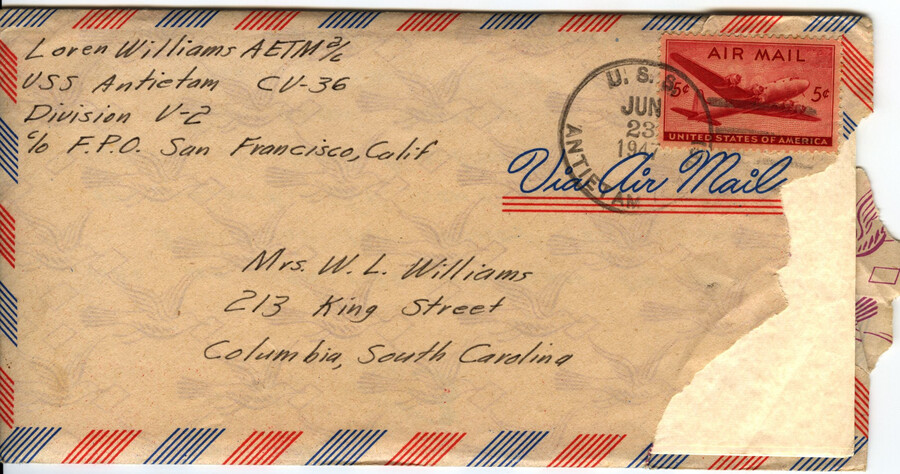 Loren Williams AETM 3/c
USS Antietam CV-36
Division V-2
c/o F.P.O. San Francisco, Calif
AIR MAIL
5¢ 5¢
UNITED STATES OF AMERICA
U. S. S.
JUN
23
1947
ANTIETAM
Via Air Mail
Mrs. W. L. Williams
213 King Street
Columbia, South Carolina